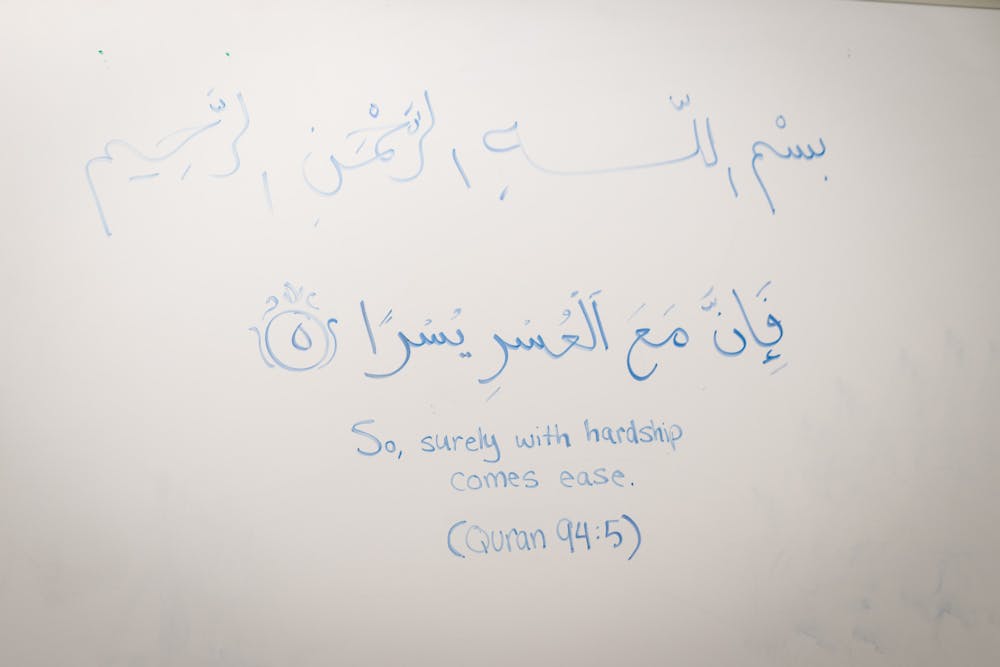 بِسْمِ اللّٰهِ الرَّحْمَنِ الرَّحِيمِ
فَإِنَّ مَعَ الْعُسْرِ يُسْرًا ٥
So, surely with hardship
comes ease.
(Quran 94:5)